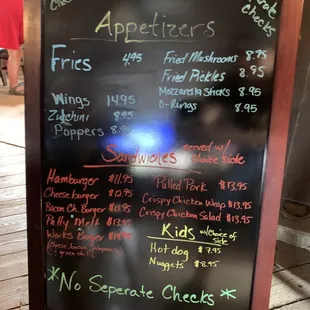 checks
Appetizers
Fries 4.95
Fried Mushrooms 8.95
Fried Pickles 8.95
Mozzarella Sticks 8.95
O-Rings 8.95
Wings 14.95
Zucchini 8.95
Poppers 8.95
Sandwiches served w/ choice side
Hamburger $11.95
Cheeseburger $12.95
Bacon Ch. Burger $13.95
Patty Melt $13.95
Works Burger $14.95
(cheese, bacon, jalapenos,
Pulled Pork $13.95
Crispy Chicken Wrap $13.95
Crispy Chicken Salad $13.95
Kids w/choice of side
Hot dog $7.95
Nuggets $8.95
*No Seperate Checks*